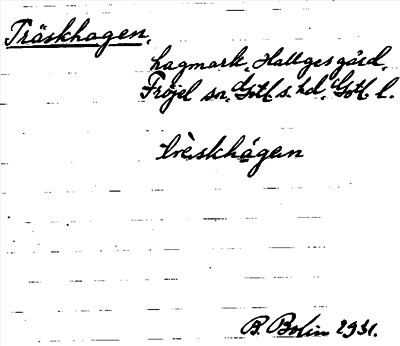 Träskhagen,
hagmark, Hallges gård,
Fröjel sn. Gotl. s. hd, Gotl. l.
trèskhágen
B. Bolin 1931.